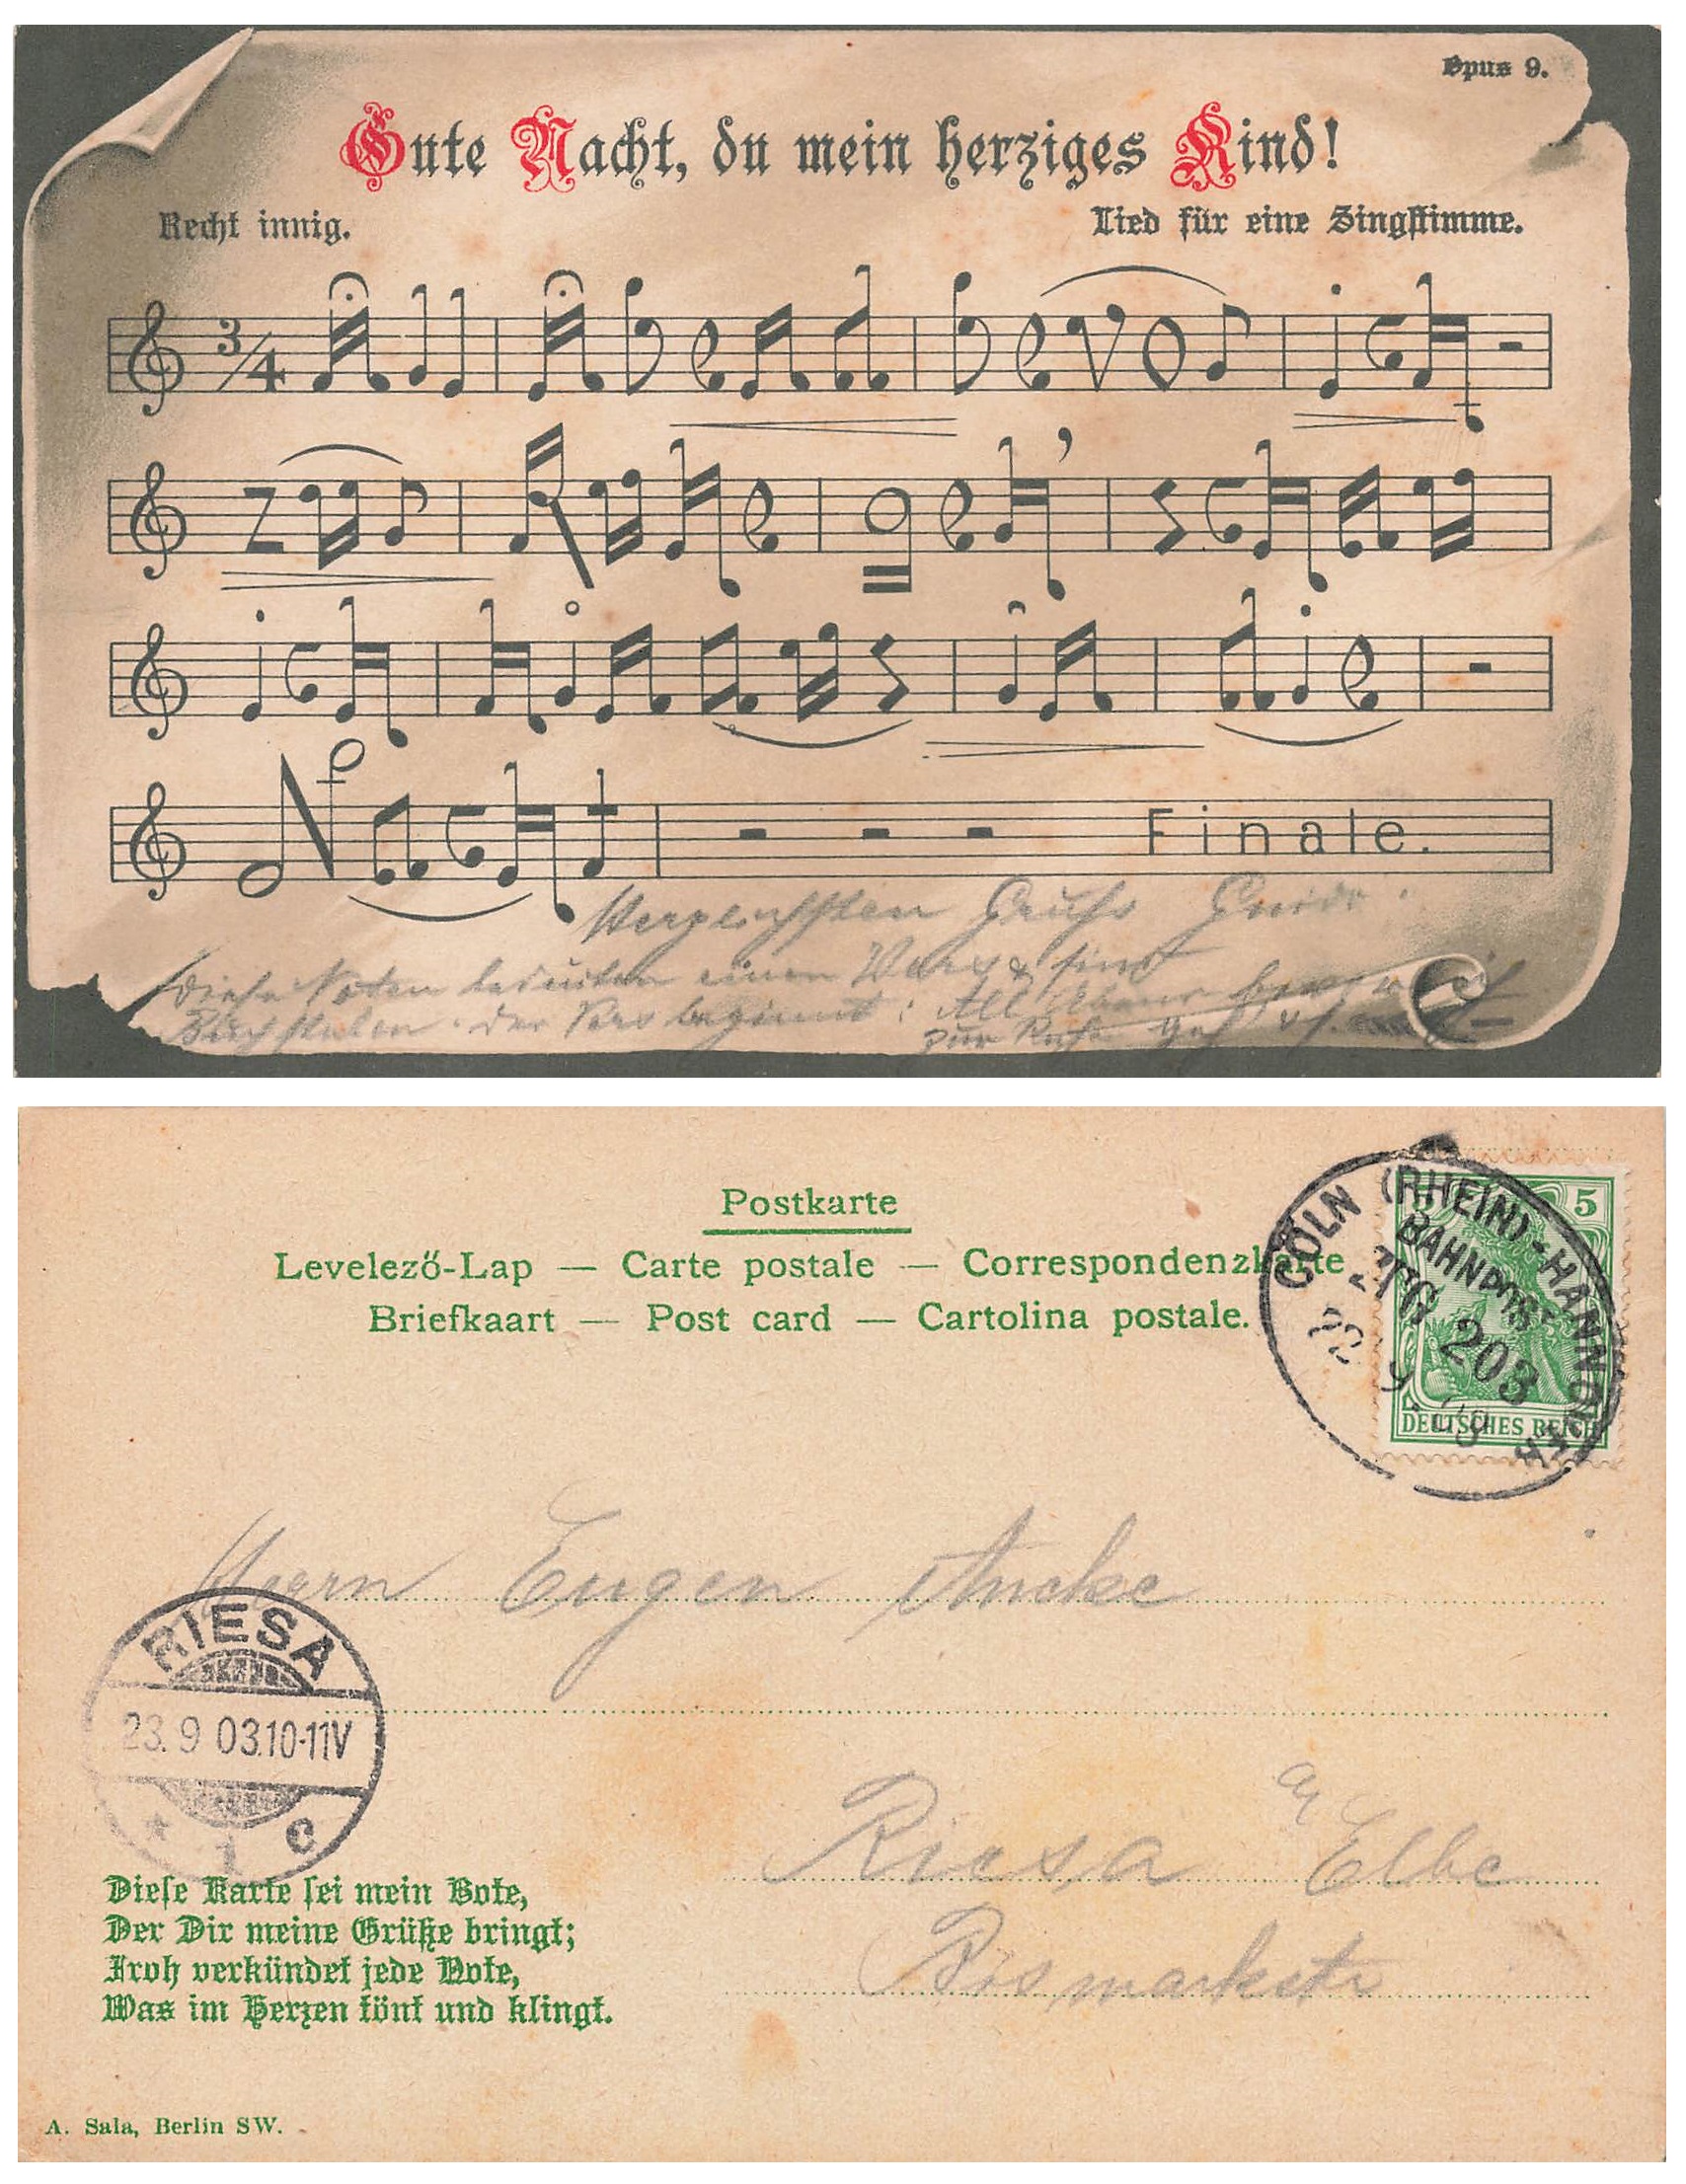 Opus 9.
Gute Nacht, du mein herziges Kind!
Recht innig.
Lied für eine Singstimme.
3/4
Finale.
Herzlichsten Gruß
Diese Noten bedeuten einen Vers & sind
Buchstaben. Der Vers beginnt: All Abend bevor ich
zur Ruhe geh
Postkarte
Levelező-Lap — Carte postale — Correspondenzkarte
Briefkaart — Post card — Cartolina postale.
CÖLN (RHEIN)-HANNOVER
BAHNPOST
ZUG 203
23 9 03
5
DEUTSCHES REICH
Herrn Eugen Ancke
RIESA
23. 9 03.10-11V
* 1 c
Riesa a/ Elbe
Bismarkstr
Diese Karte sei mein Bote,
Der Dir meine Grüße bringt;
Froh verkündet jede Note,
Was im Herzen tönt und klingt.
A. Sala, Berlin SW.